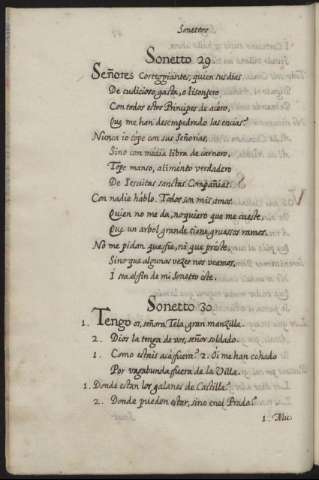 Sonettos
Sonetto 29
Señores Corteggiantes, quien sus dias
De cudicioso gasta, o lisonjero
Con todos estos Principes de acero,
Que me han desempedrado las encias?
Nunca io tope con sus Señorias,
Sino con media libra de carnero,
Tope manso, alimento verdadero
De Jesuitas sanctas Compañias.
Con nadie hablo. Todos son mis amos.
Quien no me da, no quiero que me cueste,
Que un arbol grande tiene gruessos ramos.
No me pidan que fie, ni que preste,
Sino que algunas vezes nos veamos,
I sea el fin de mi Sonetto este.
Sonetto 30
1. Tengo os, señora Tela, gran manzilla.
2. Dios la tenga de vos, señor soldado.
1. Como estais acà fuera? 2. Oi me han echado
Por vagabunda fuera de la Villa.
1. Donde estan los galanes de Castilla?
2. Donde pueden estar, sino en el Prado?
1. Mu-